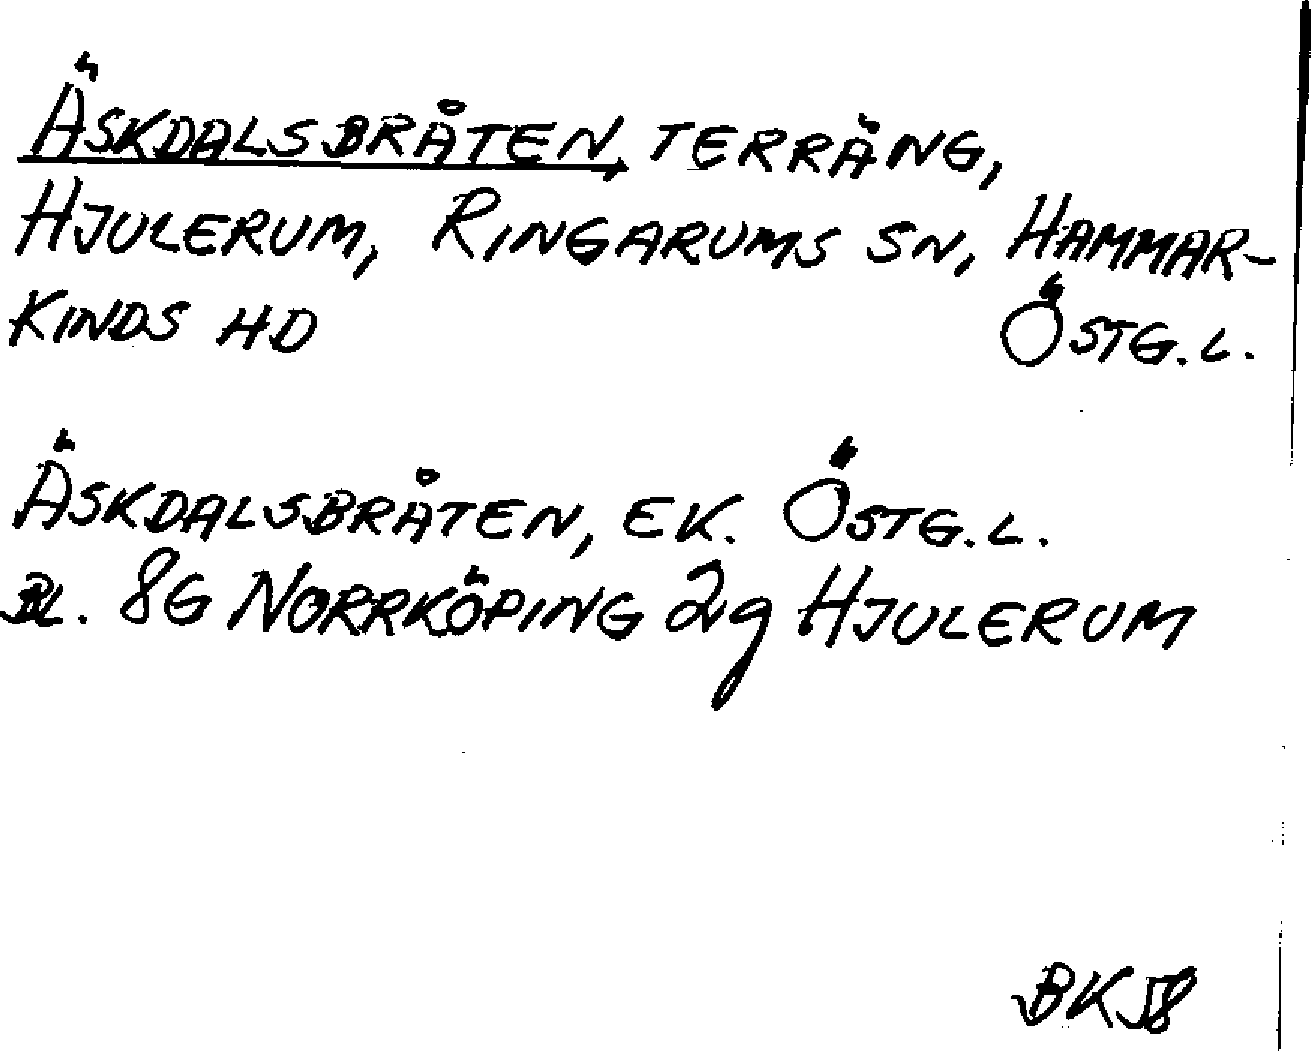 ÄSKDALSBRÅTEN, TERRÄNG,
HJULERUM, RINGARUMS SN, HAMMAR-
KINDS HD ÖSTG.L.
ÄSKDALSBRÅTEN, EK. ÖSTG.L.
BL. 8G NORRKÖPING 2g HJULERUM
BK58